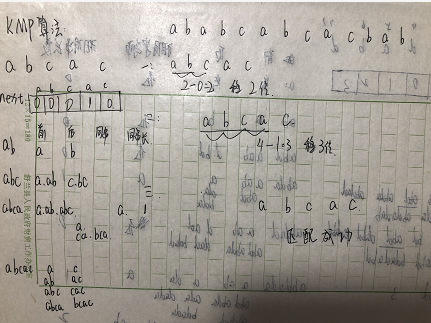 KMP算法:
a b a b c a b c a c b a b
a b c a c
一: a b c a c
2-0=2 移2位
a b c a c
next: 0 0 0 1 0
二: a b c a c
4-1=3 移3位
前 后
ab a b
abc a.ab c.bc
三: a b c a c
匹配成功
abca a.ab.abc a. 1
a.
ca.bca
abcac a c
ab ac
abc cac
abca bcac